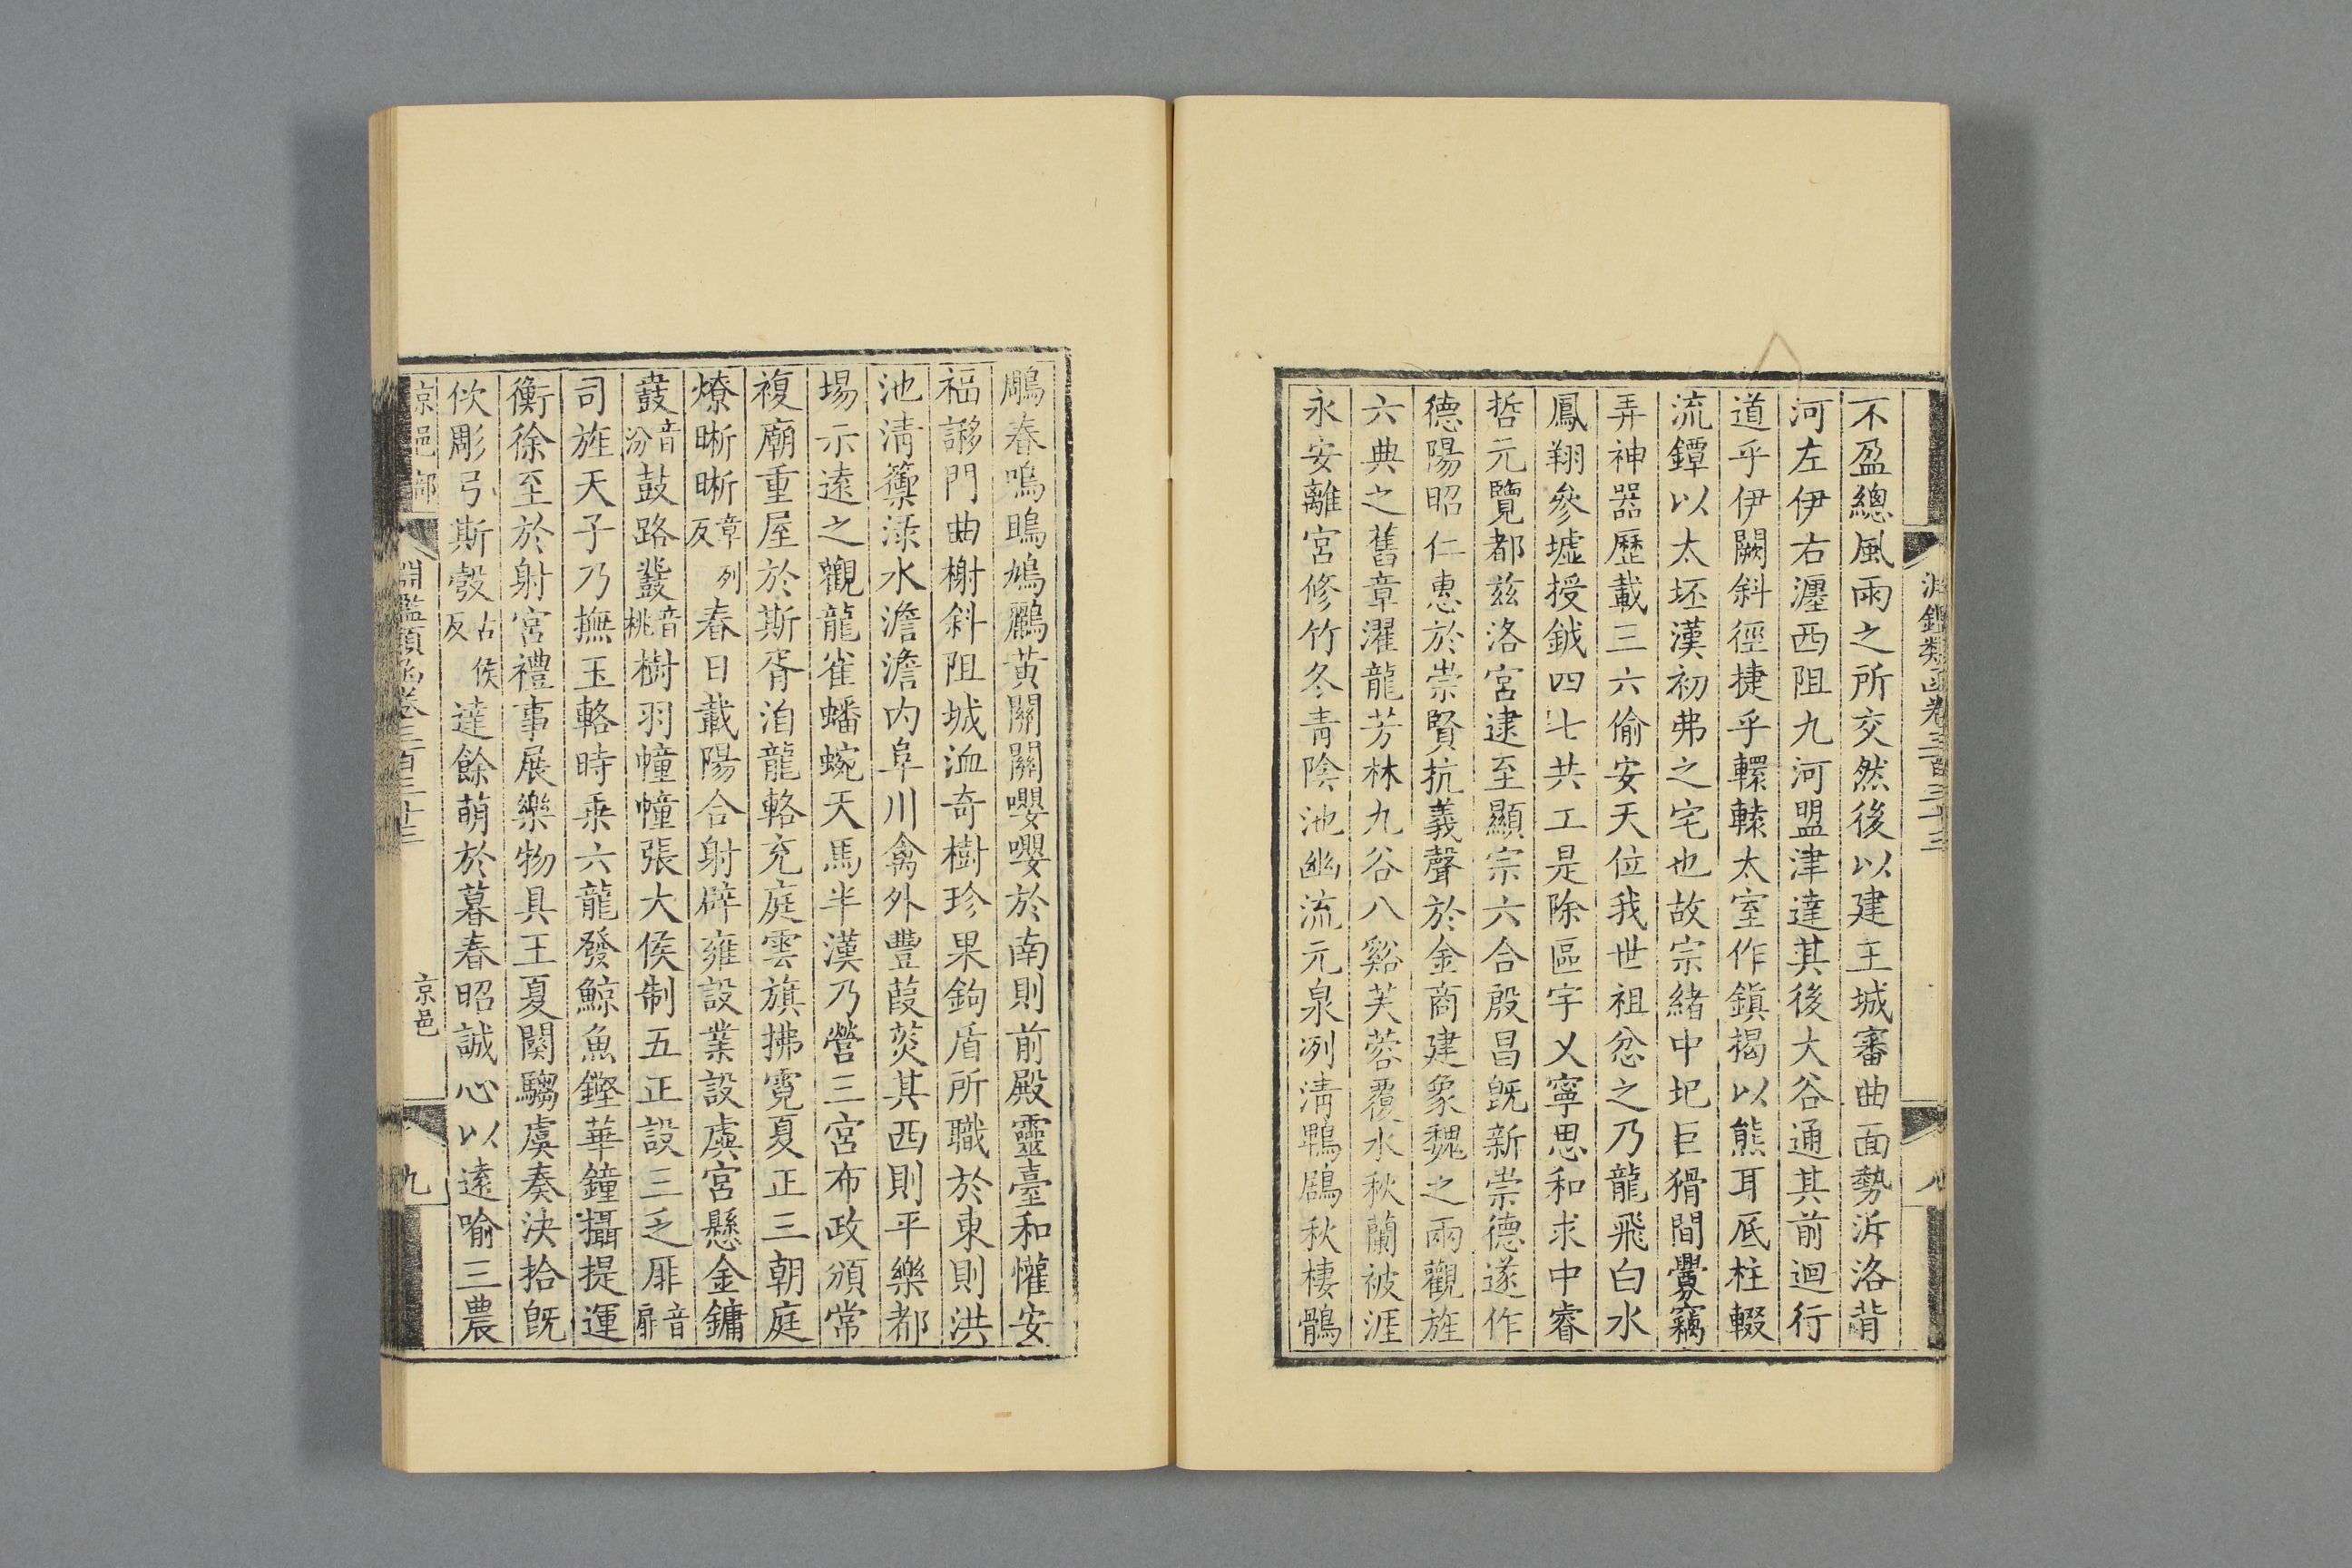 淵鑑類函卷三百三十三
八
不盈總風雨之所交然後以建王城審曲面勢泝洛背
河左伊右瀍西阻九河盟津達其後大谷通其前迴行
道乎伊闕斜徑捷乎轘轅太室作鎮揭以熊耳底柱輟
流鐔以太坯漢初弗之宅也故宗緒中圯巨猾間釁竊
弄神器歷載三六偷安天位我世祖忿之乃龍飛白水
鳳翔參墟授鉞四七共工是除區宇乂寧思和求中睿
哲元覽都兹洛宮逮至顯宗六合殷昌旣新崇德遂作
德陽昭仁惠於崇賢抗義聲於金商建象魏之兩觀旌
六典之舊章濯龍芳林九谷八谿芙蓉覆水秋蘭被涯
永安離宮修竹冬青陰池幽流元泉洌淸鵯鶋秋棲鶻
鵰春鳴鴡鳩鸝黃關關嚶嚶於南則前殿靈臺和懽安
福謻門曲榭斜阻城洫奇樹珍果鉤盾所職於東則洪
池淸籞渌水澹澹内阜川禽外豐葭菼其西則平樂都
場示遠之觀龍雀蟠蜿天馬半漢乃營三宮布政頒常
複廟重屋於斯胥洎龍輅充庭雲旗拂霓夏正三朝庭
燎晣晣章列反春日載陽合射辟雍設業設虡宮懸金鏞
鼖音汾鼓路鼗音桃樹羽幢幢張大侯制五正設三乏厞音扉
司旌天子乃撫玉輅時乗六龍發鯨魚鏗華鐘攝提運
衡徐至於射宮禮事展樂物具王夏闋騶虞奏決拾旣
佽彫弓斯彀古侯反達餘萌於暮春昭誠心以遠喻三農
京邑部
淵鑑類函卷三百三十三
京邑
九